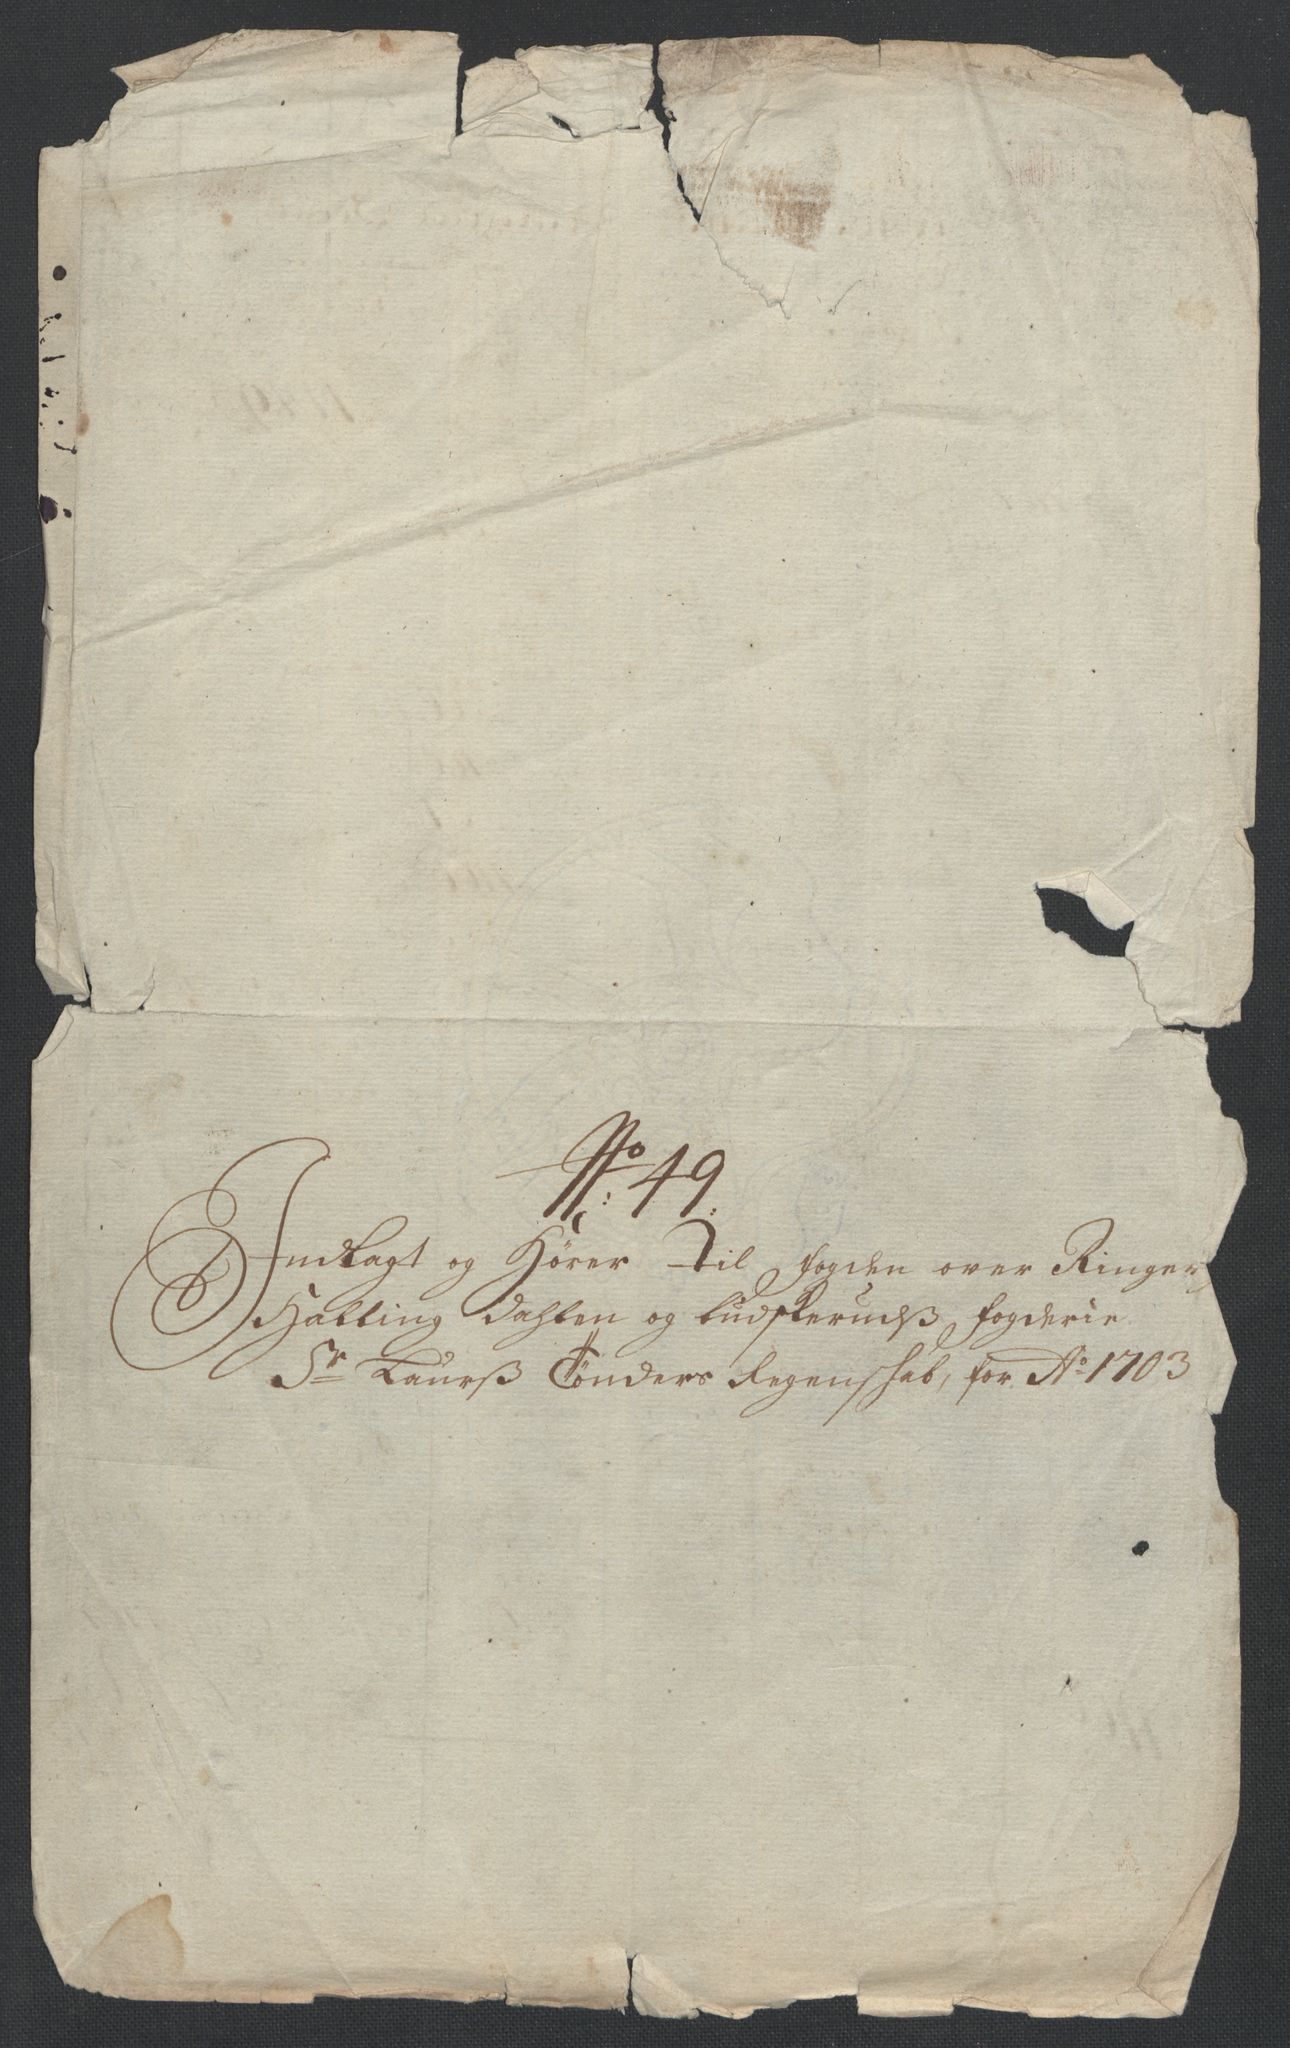 No: 49:
Indlagt og Hører Til fogden over Ringer,
Halling dahlen og budskeruds fogderie
Sr Laurß Tønders Regenskab, for Ao 1703